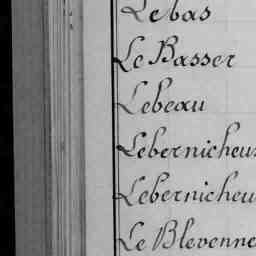 Lebas
Le Basser
Lebeau
Lebernicheux
Lebernicheu
Le Blevenne